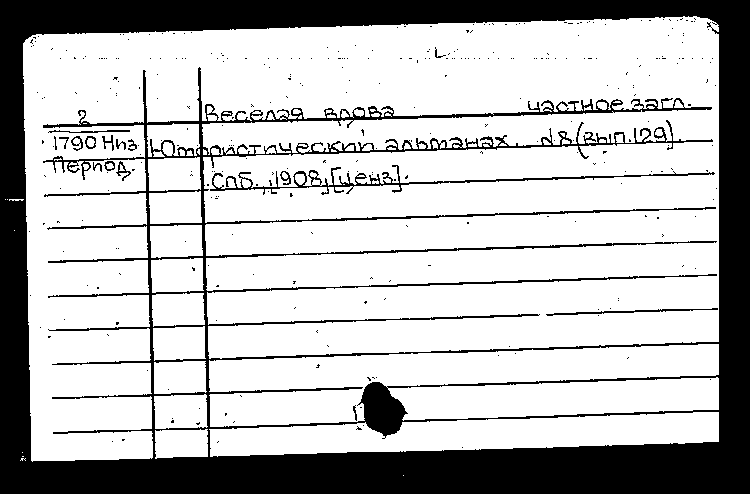 Веселая вдова частное загл.
2
1790 Низ Юмористический альманах. №8 (вып.129).
Период.
Спб., [1908, [ценз].